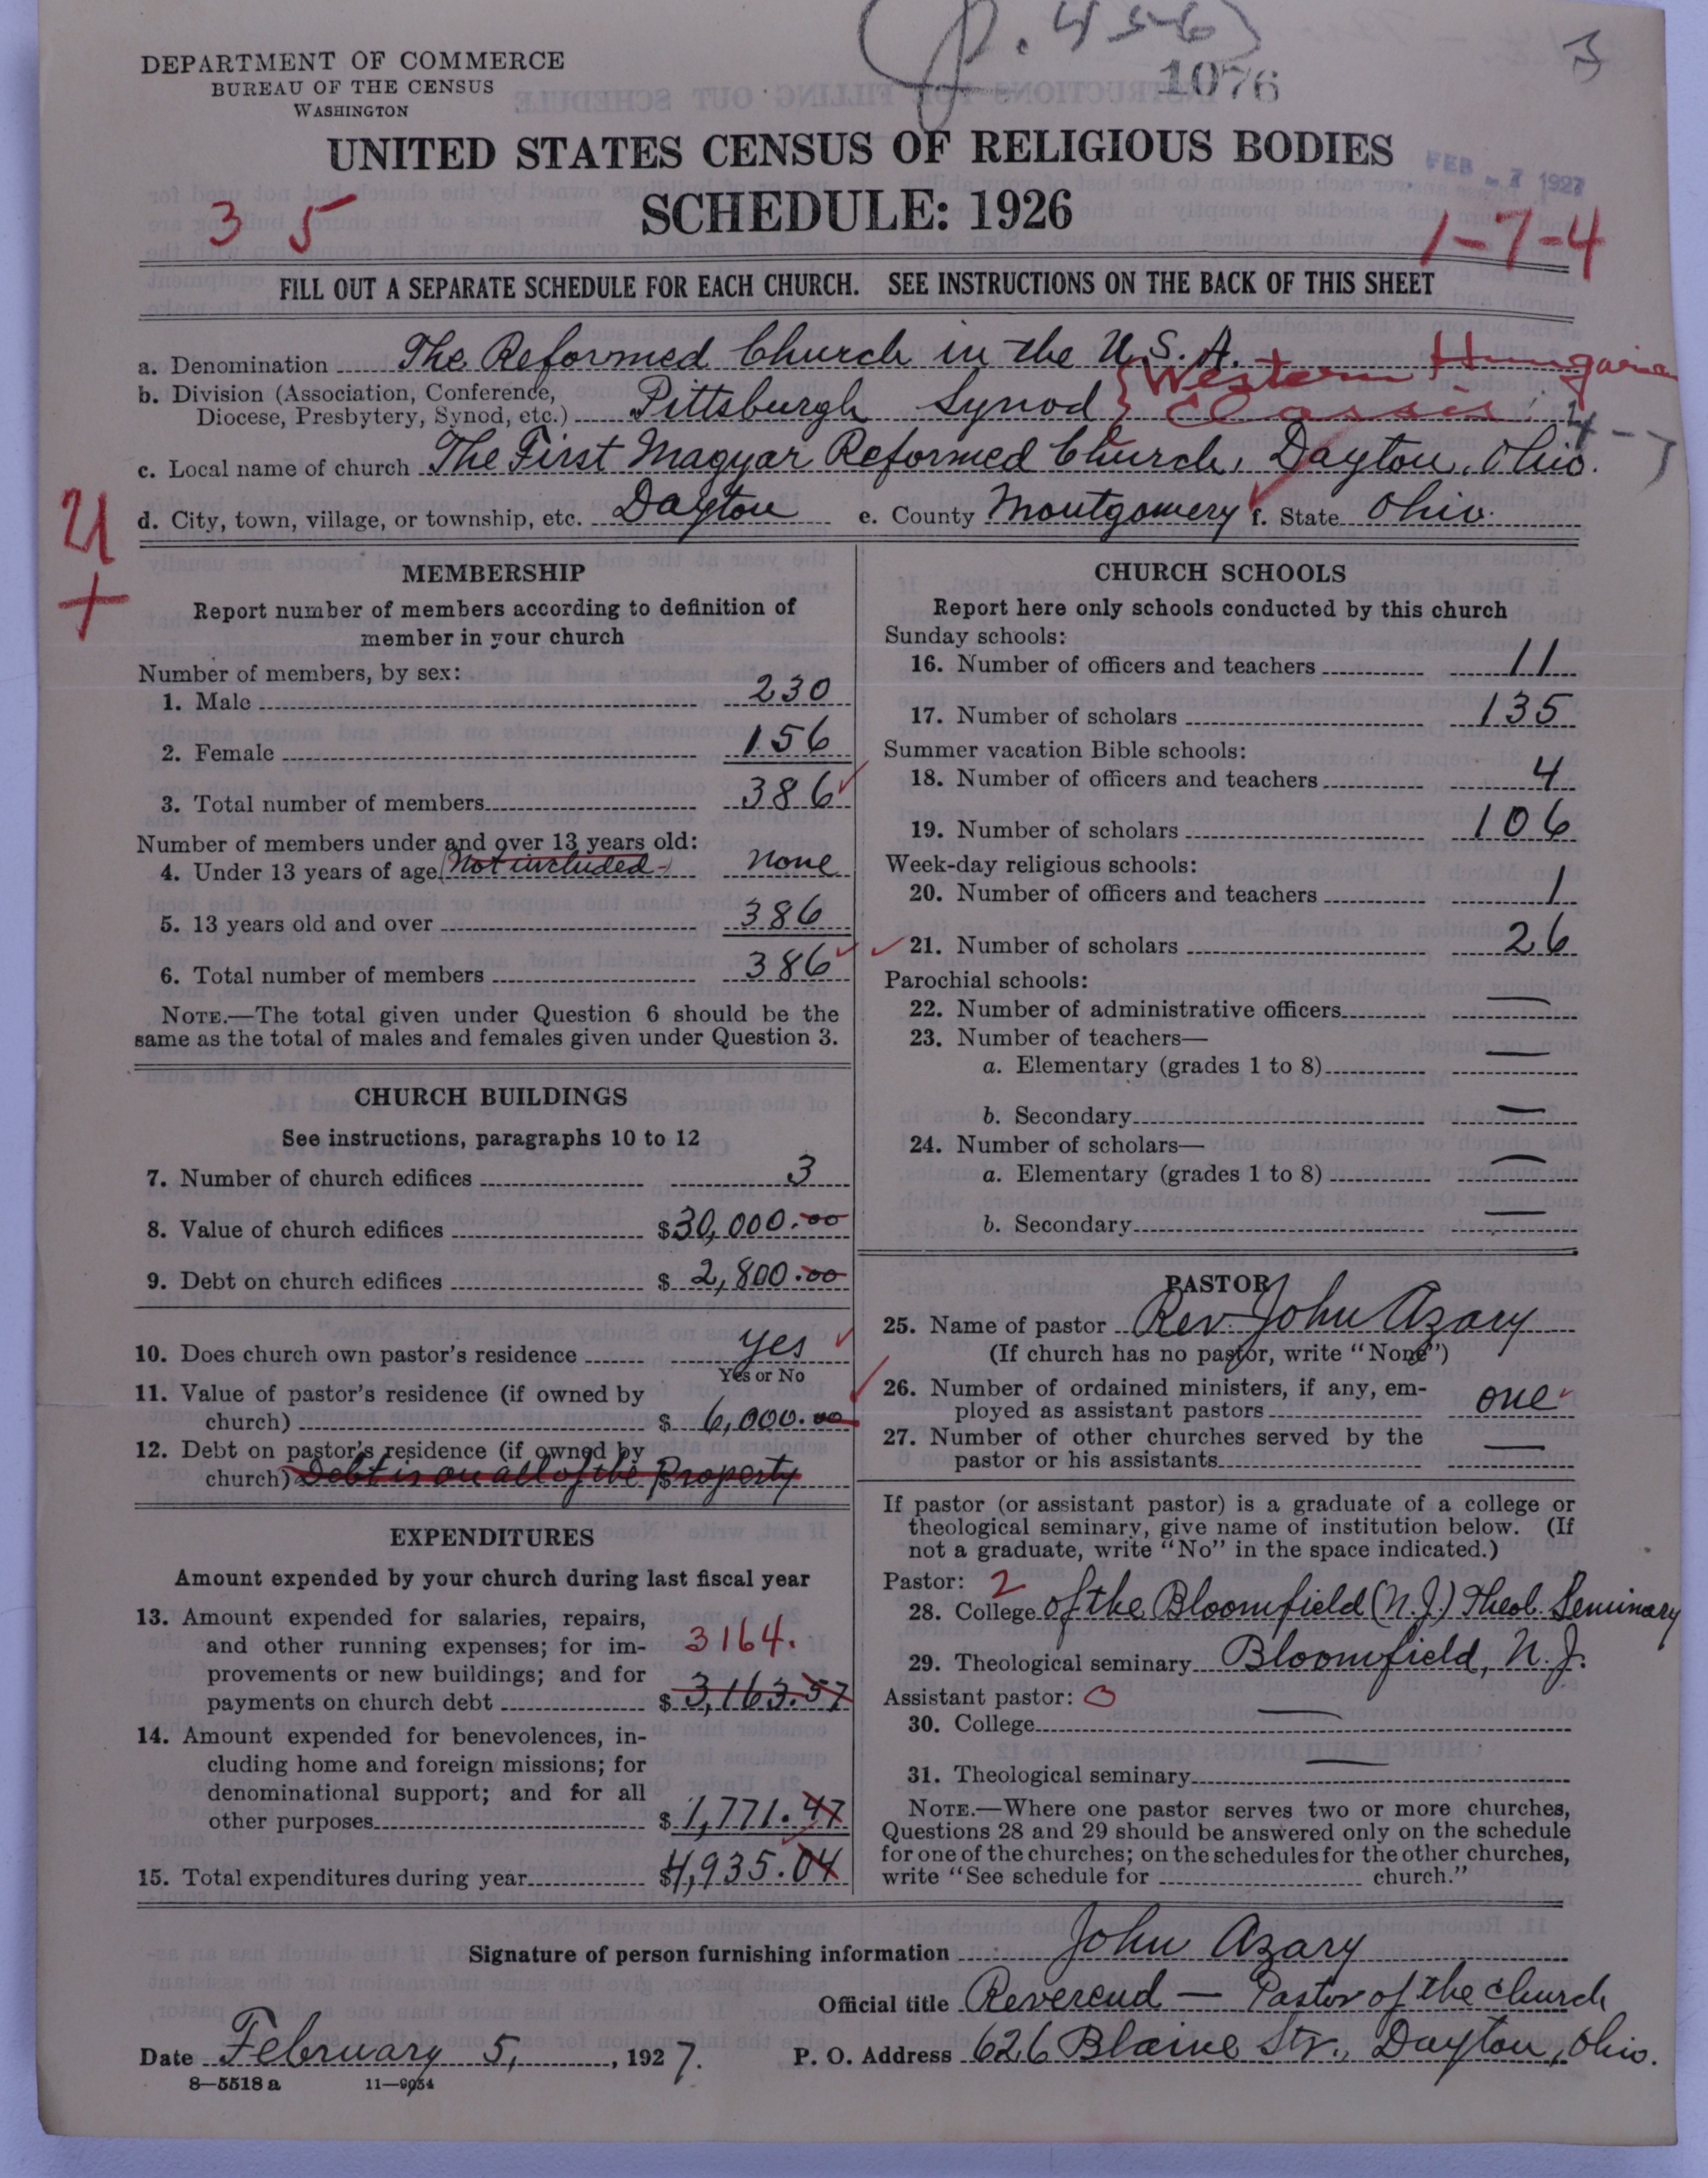 (p. 456)
3
DEPARTMENT OF COMMERCE
BUREAU OF THE CENSUS
WASHINGTON
1076
UNITED STATES CENSUS OF RELIGIOUS BODIES
FEB - 7 1927
SCHEDULE: 1926
3 5
1-7-4
FILL OUT A SEPARATE SCHEDULE FOR EACH CHURCH. SEE INSTRUCTIONS ON THE BACK OF THIS SHEET
a. Denomination The Reformed Church in the U.S.A.
b. Division (Association, Conference, Diocese, Presbytery, Synod, etc.) Pittsburgh Synod } Western Hungarian Classis
4-7
c. Local name of church The First Magyar Reformed Church, Dayton, Ohio.
d. City, town, village, or township, etc. Dayton e. County Montgomery f. State Ohio.
MEMBERSHIP
Report number of members according to definition of
member in your church
Number of members, by sex:
1. Male 230
2. Female 156
3. Total number of members 386
Number of members under and over 13 years old:
4. Under 13 years of age (Not included) none
5. 13 years old and over 386
6. Total number of members 386
NOTE.—The total given under Question 6 should be the
same as the total of males and females given under Question 3.
CHURCH BUILDINGS
See instructions, paragraphs 10 to 12
7. Number of church edifices 3
8. Value of church edifices $30,000.00
9. Debt on church edifices $ 2,800.00
10. Does church own pastor's residence yes
Yes or No
11. Value of pastor's residence (if owned by
church) $ 6,000.00
12. Debt on pastor's residence (if owned by
church) Debt is on all of the $ Property
EXPENDITURES
Amount expended by your church during last fiscal year
13. Amount expended for salaries, repairs,
and other running expenses; for im- 3164.
provements or new buildings; and for
payments on church debt $ 3,163.57
14. Amount expended for benevolences, in-
cluding home and foreign missions; for
denominational support; and for all
other purposes $ 1,771.47
15. Total expenditures during year $4,935.04
CHURCH SCHOOLS
Report here only schools conducted by this church
Sunday schools:
16. Number of officers and teachers 11
17. Number of scholars 135
Summer vacation Bible schools:
18. Number of officers and teachers 4
19. Number of scholars 106
Week-day religious schools:
20. Number of officers and teachers 1
21. Number of scholars 26
Parochial schools:
22. Number of administrative officers —
23. Number of teachers—
a. Elementary (grades 1 to 8) —
b. Secondary —
24. Number of scholars—
a. Elementary (grades 1 to 8) —
b. Secondary —
PASTOR
25. Name of pastor Rev. John Azary
(If church has no pastor, write "None")
26. Number of ordained ministers, if any, em-
ployed as assistant pastors one
27. Number of other churches served by the
pastor or his assistants —
If pastor (or assistant pastor) is a graduate of a college or
theological seminary, give name of institution below. (If
not a graduate, write "No" in the space indicated.)
Pastor: 2
28. College of the Bloomfield (N.J.) Theol. Seminary
29. Theological seminary Bloomfield, N.J.
Assistant pastor: 0
30. College —
31. Theological seminary —
NOTE.—Where one pastor serves two or more churches,
Questions 28 and 29 should be answered only on the schedule
for one of the churches; on the schedules for the other churches,
write "See schedule for church."
Signature of person furnishing information John Azary
Official title Reverend — Pastor of the church
Date February 5, 1927. P. O. Address 626 Blaine Str., Dayton, Ohio.
8—5518 a 11—9034